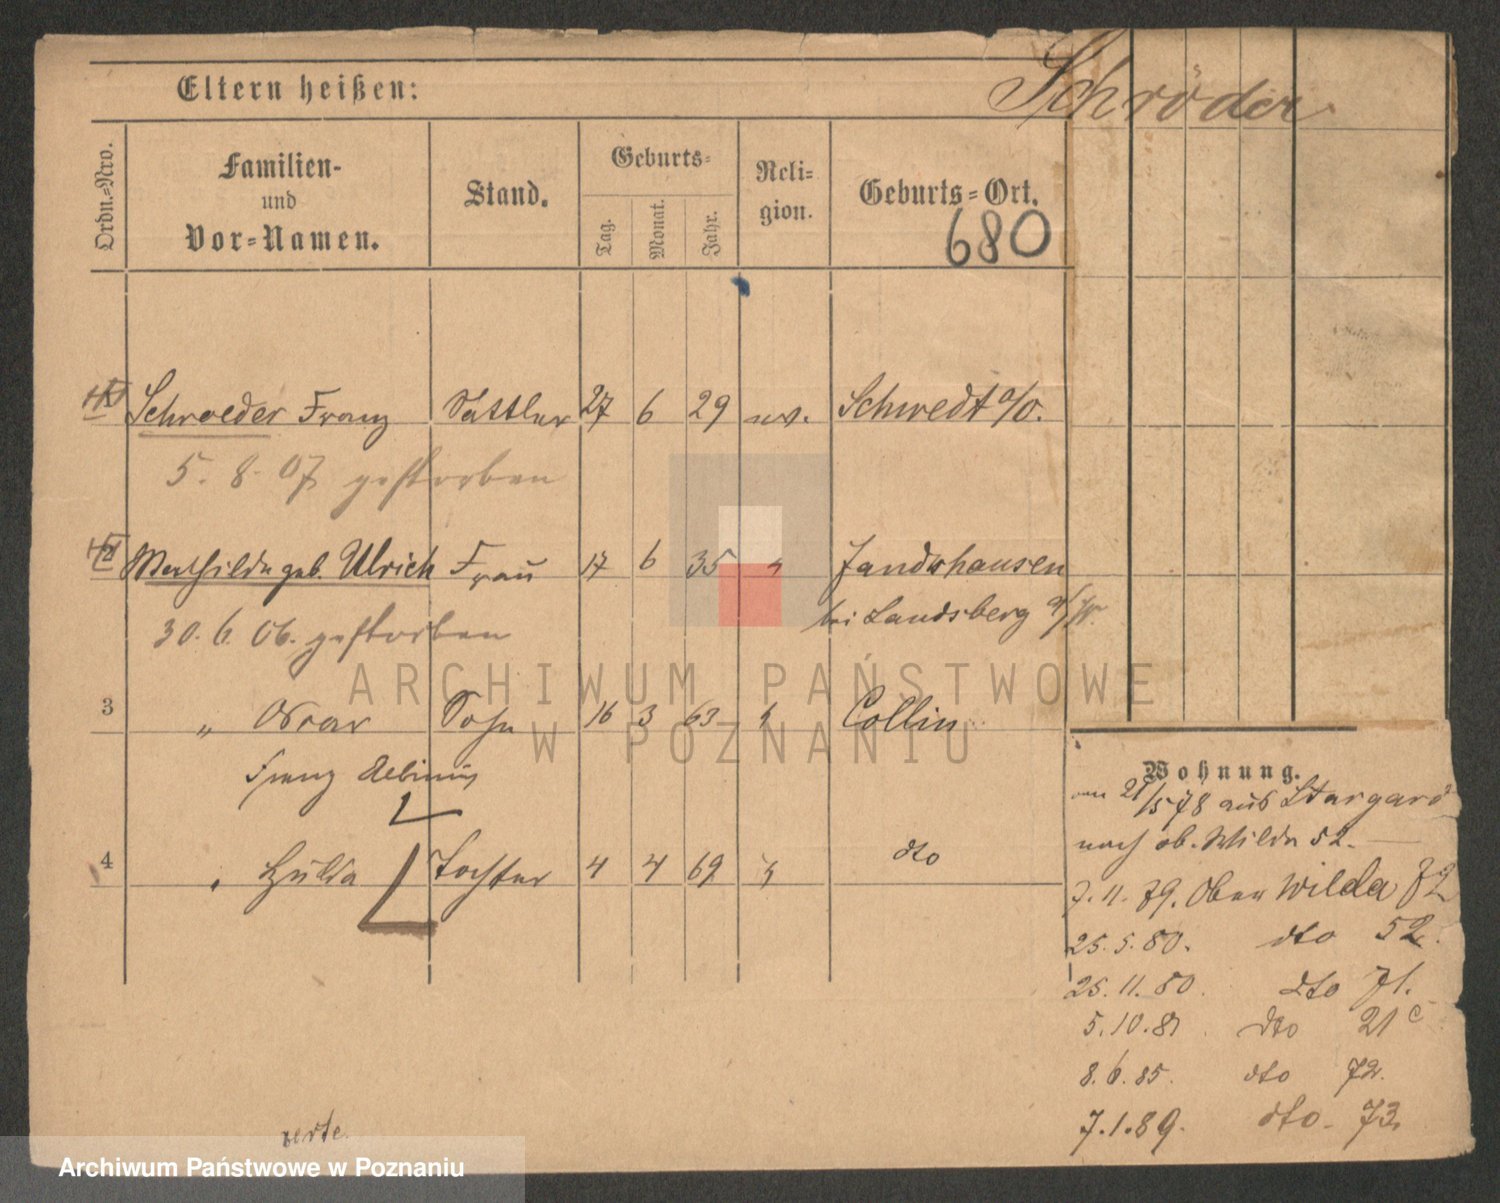 Eltern heißen:
Schröder
Ordn.=Nro.
Familien-
und
Vor=Namen.
Stand.
Geburts=
Tag.
Monat.
Jahr.
Reli=
gion.
Geburts=Ort.
680
Schroeder Franz Sattler 27 6 29 ev. Schwedt a/O.
5. 8. 07 gestorben
2 Mathilde geb. Ulrich Frau 17 6 35 " 
bei Landsberg a/W.
30. 6. 06. gestorben
3 " Oscar Sohn 16 3 63 " Collin
Franz
4 " Hulda Tochter 4 4 69 " dto
Wohnung.
21/5 78 aus Stargard
nach ob. Wilda 52.
7. 11. 79. Ober Wilda 72
25. 5. 80. dto 52.
25. 11. 80. dto 71.
5. 10. 81. dto 21 c
8. 6. 85. dto 72.
7. 1. 89. dto. 73.
verte.
ARCHIWUM PAŃSTWOWE
W POZNANIU
Archiwum Państwowe w Poznaniu